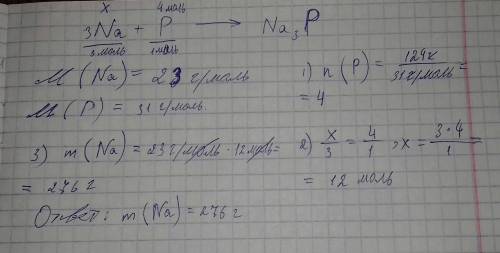 x 4 моль
3Na + P → Na₃P
3 моль 1 моль
M(Na) = 23 г/моль
M(P) = 31 г/моль.
1) n(P) = 124г / 31 г/моль =
= 4
2) x/3 = 4/1, x = 3·4/1
= 12 моль
3) m(Na) = 23 г/моль · 12 моль =
= 276 г
Ответ: m(Na) = 276 г